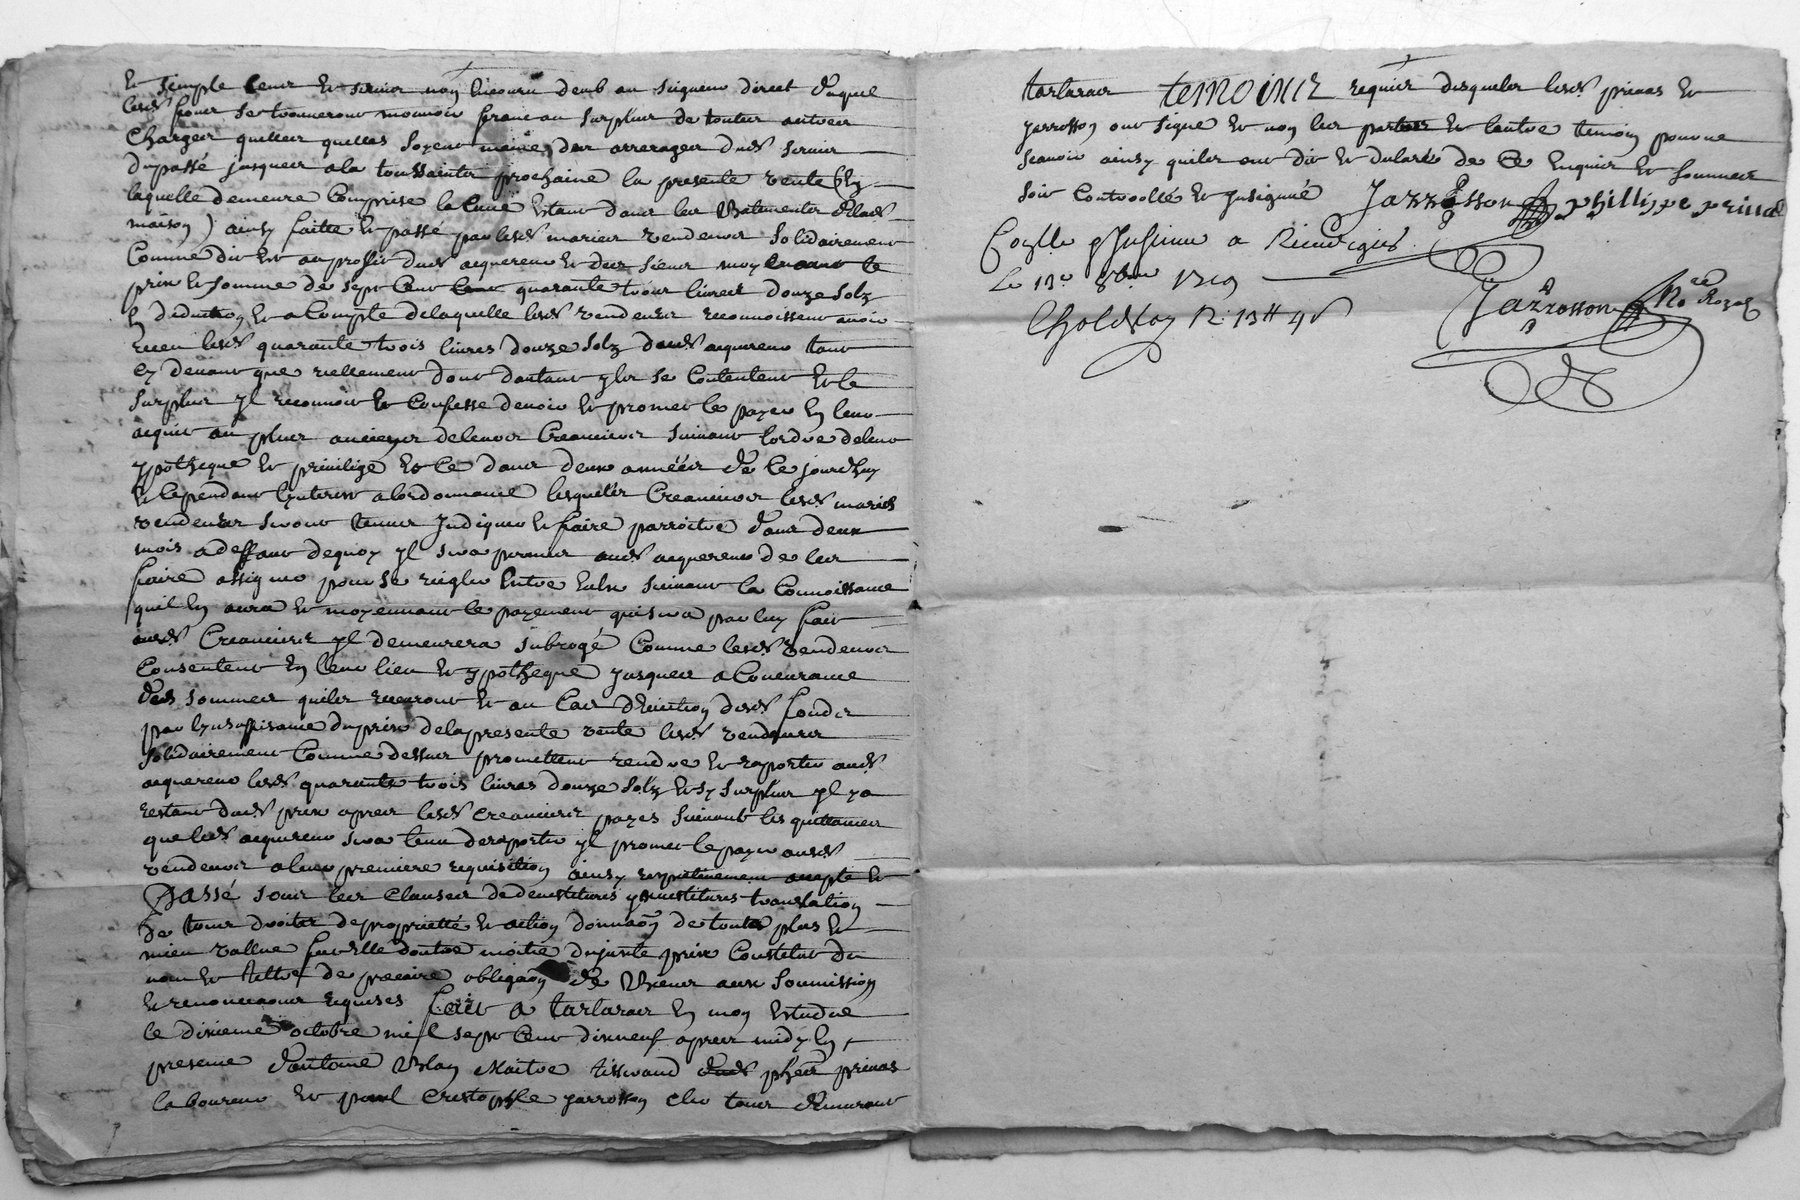 et simple cens et servis non encouru deub au seigneur direct duquel
lesds fons se trouveront mouvoir franc au surplus de toutes autres
charges quelles quelles soyent même des arrerages duds servis
du passé jusques a la toussaintz prochaine la presente vente (en
laquelle demeure comprise la cuve estant dans les batimentz de lade
maison) ainsy faitte et passé par lesds mariés vendeurs solidairement
comme dit et au proffit dud acquereur et des siens moyenant le
prix et somme de sept cent quarante trois livres douze solz
en deduction et a compte de laquelle lesds vendeurs reconnoissent avoir
receu lesds quarante trois livres douze solz dud acquereur tant
cy devant que reellement dont dautant ylz se contentent et le
surplus yl reconnoit et confesse devoir et promet le payer en leur
acquit au plus anciens de leurs creanciers suivant lordre de leur
ypotheque et privilege et ce dans deux années de ce jourdhuy
et cependant lynterest a lordonnance lesquels creanciers lesds mariés
vendeurs seront tenus yndiquer et faire parroitre dans deux
mois a deffaut dequoy yl sera permis aud acquereur de les
faire assigner pour se regler entre eulx suivant la connoissance
quil en aura et moyennant le payement qui sera par luy fait
auds creanciers yl demeurera subrogé comme lesds vendeurs
consentent en leur lieu et ypotheque jusques a concurance
des sommes quils recevront et au cas deviction desds fonds
par lynsuffisance du prix de la presente vente lesds vendeurs
solidairement comme dessus promettent rendre et raporter aud
acquereur lesds quarante trois livres douze solz et sy surplus yl y a
restant dud prix apres lesds creanciers payes suivant les quittances
que led acquereur sera tenu deraporter yl promet le payer auds
vendeurs a leur premiere requisition ainsy respectivement accepté et
Passé sous les clauses de devestitures ynvestitures translation
de tous droitz de proprietté et action donnaôn de toutes plus et
mieu vallue fut elle doutre moitié du juste prix constitut du
nom et tittre de precaire obligaôn de biens aux soumission
et renonciaons requises fait a tartaras en mon estude
le dixieme octobre mil sept cent dixneuf apres midy en
presence dantoine blay maitre tisserand phê prinas
laboureur et paul cristophle jarrosson clerc tous demeurant
tartaras temoinz requis desquelz lesds prinas et
jarrosson ont signé et non les parties et lautre temoin pour ne
scavoir ainsy quilz ont dit et declaré de ce enquis et sommes
soit controollé et ynsigniié Jarrosson phillippe prinas
Coollé & Insinué a Rivedegier
Le 13e 8bre 1719
Choldkoy R. 13 ₶ 4 s
Jarrosson No re Royal